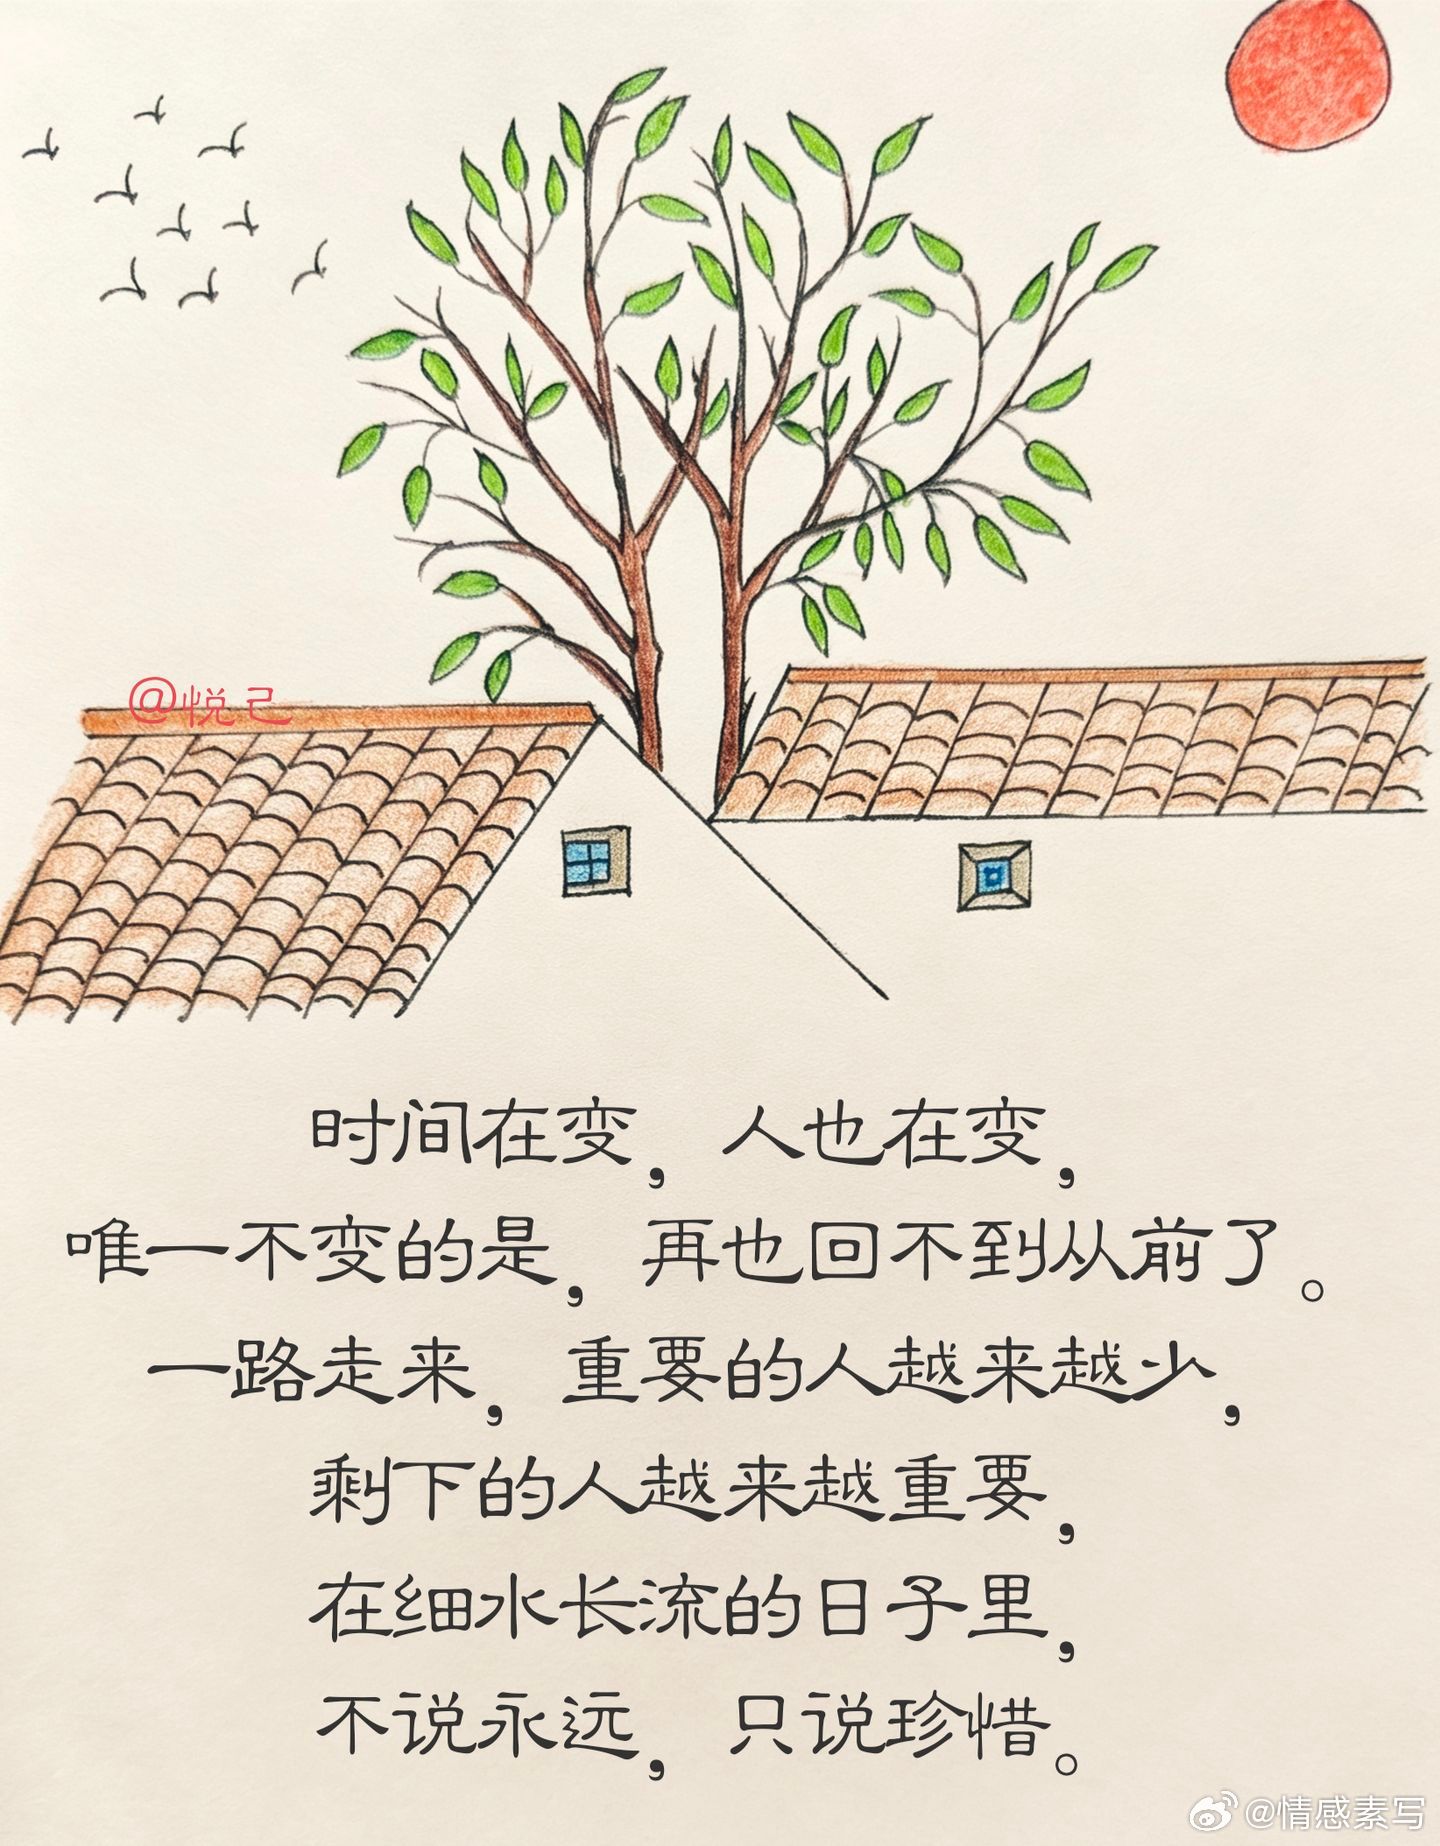 @悦己
时间在变，人也在变，
唯一不变的是，再也回不到从前了。
一路走来，重要的人越来越少，
剩下的人越来越重要，
在细水长流的日子里，
不说永远，只说珍惜。
@情感素写